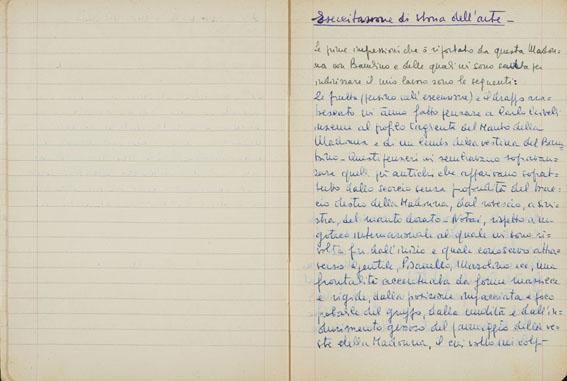 Esercitazione di storia dell'arte -
Le prime impressioni che ò riportato da questa Madon-
na con Bambino e delle quali mi sono servita per
indirizzare il mio lavoro sono le seguenti:
le frutta (persino nell' esecuzione) e il drappo ara-
bescato mi ànno fatto pensare a Carlo Crivelli
insieme al profilo tagliente del Manto della
Madonna e di un lembo della vestina del Bam-
bino - Questi pensieri mi sembravano sopravan-
zare quelli più antichi che apparivano soprat-
tutto dallo scorcio senza profondità del brac-
cio destro della Madonna, dal rovescio, a sini-
stra, del manto dorato - Notai, rispetto a un
gotico internazionale al quale mi sono ri-
volta fin dall'inizio e quale conoscevo attra-
verso Gentile, Pisanello, Masolino ecc, una
frontalità accentuata da forme massicce
e rigide, dalla posizione impacciata e poco
del gruppo, dalla nudità e dall'in-
durimento del panneggio della ve-
ste della Madonna, il cui volto mi colpì